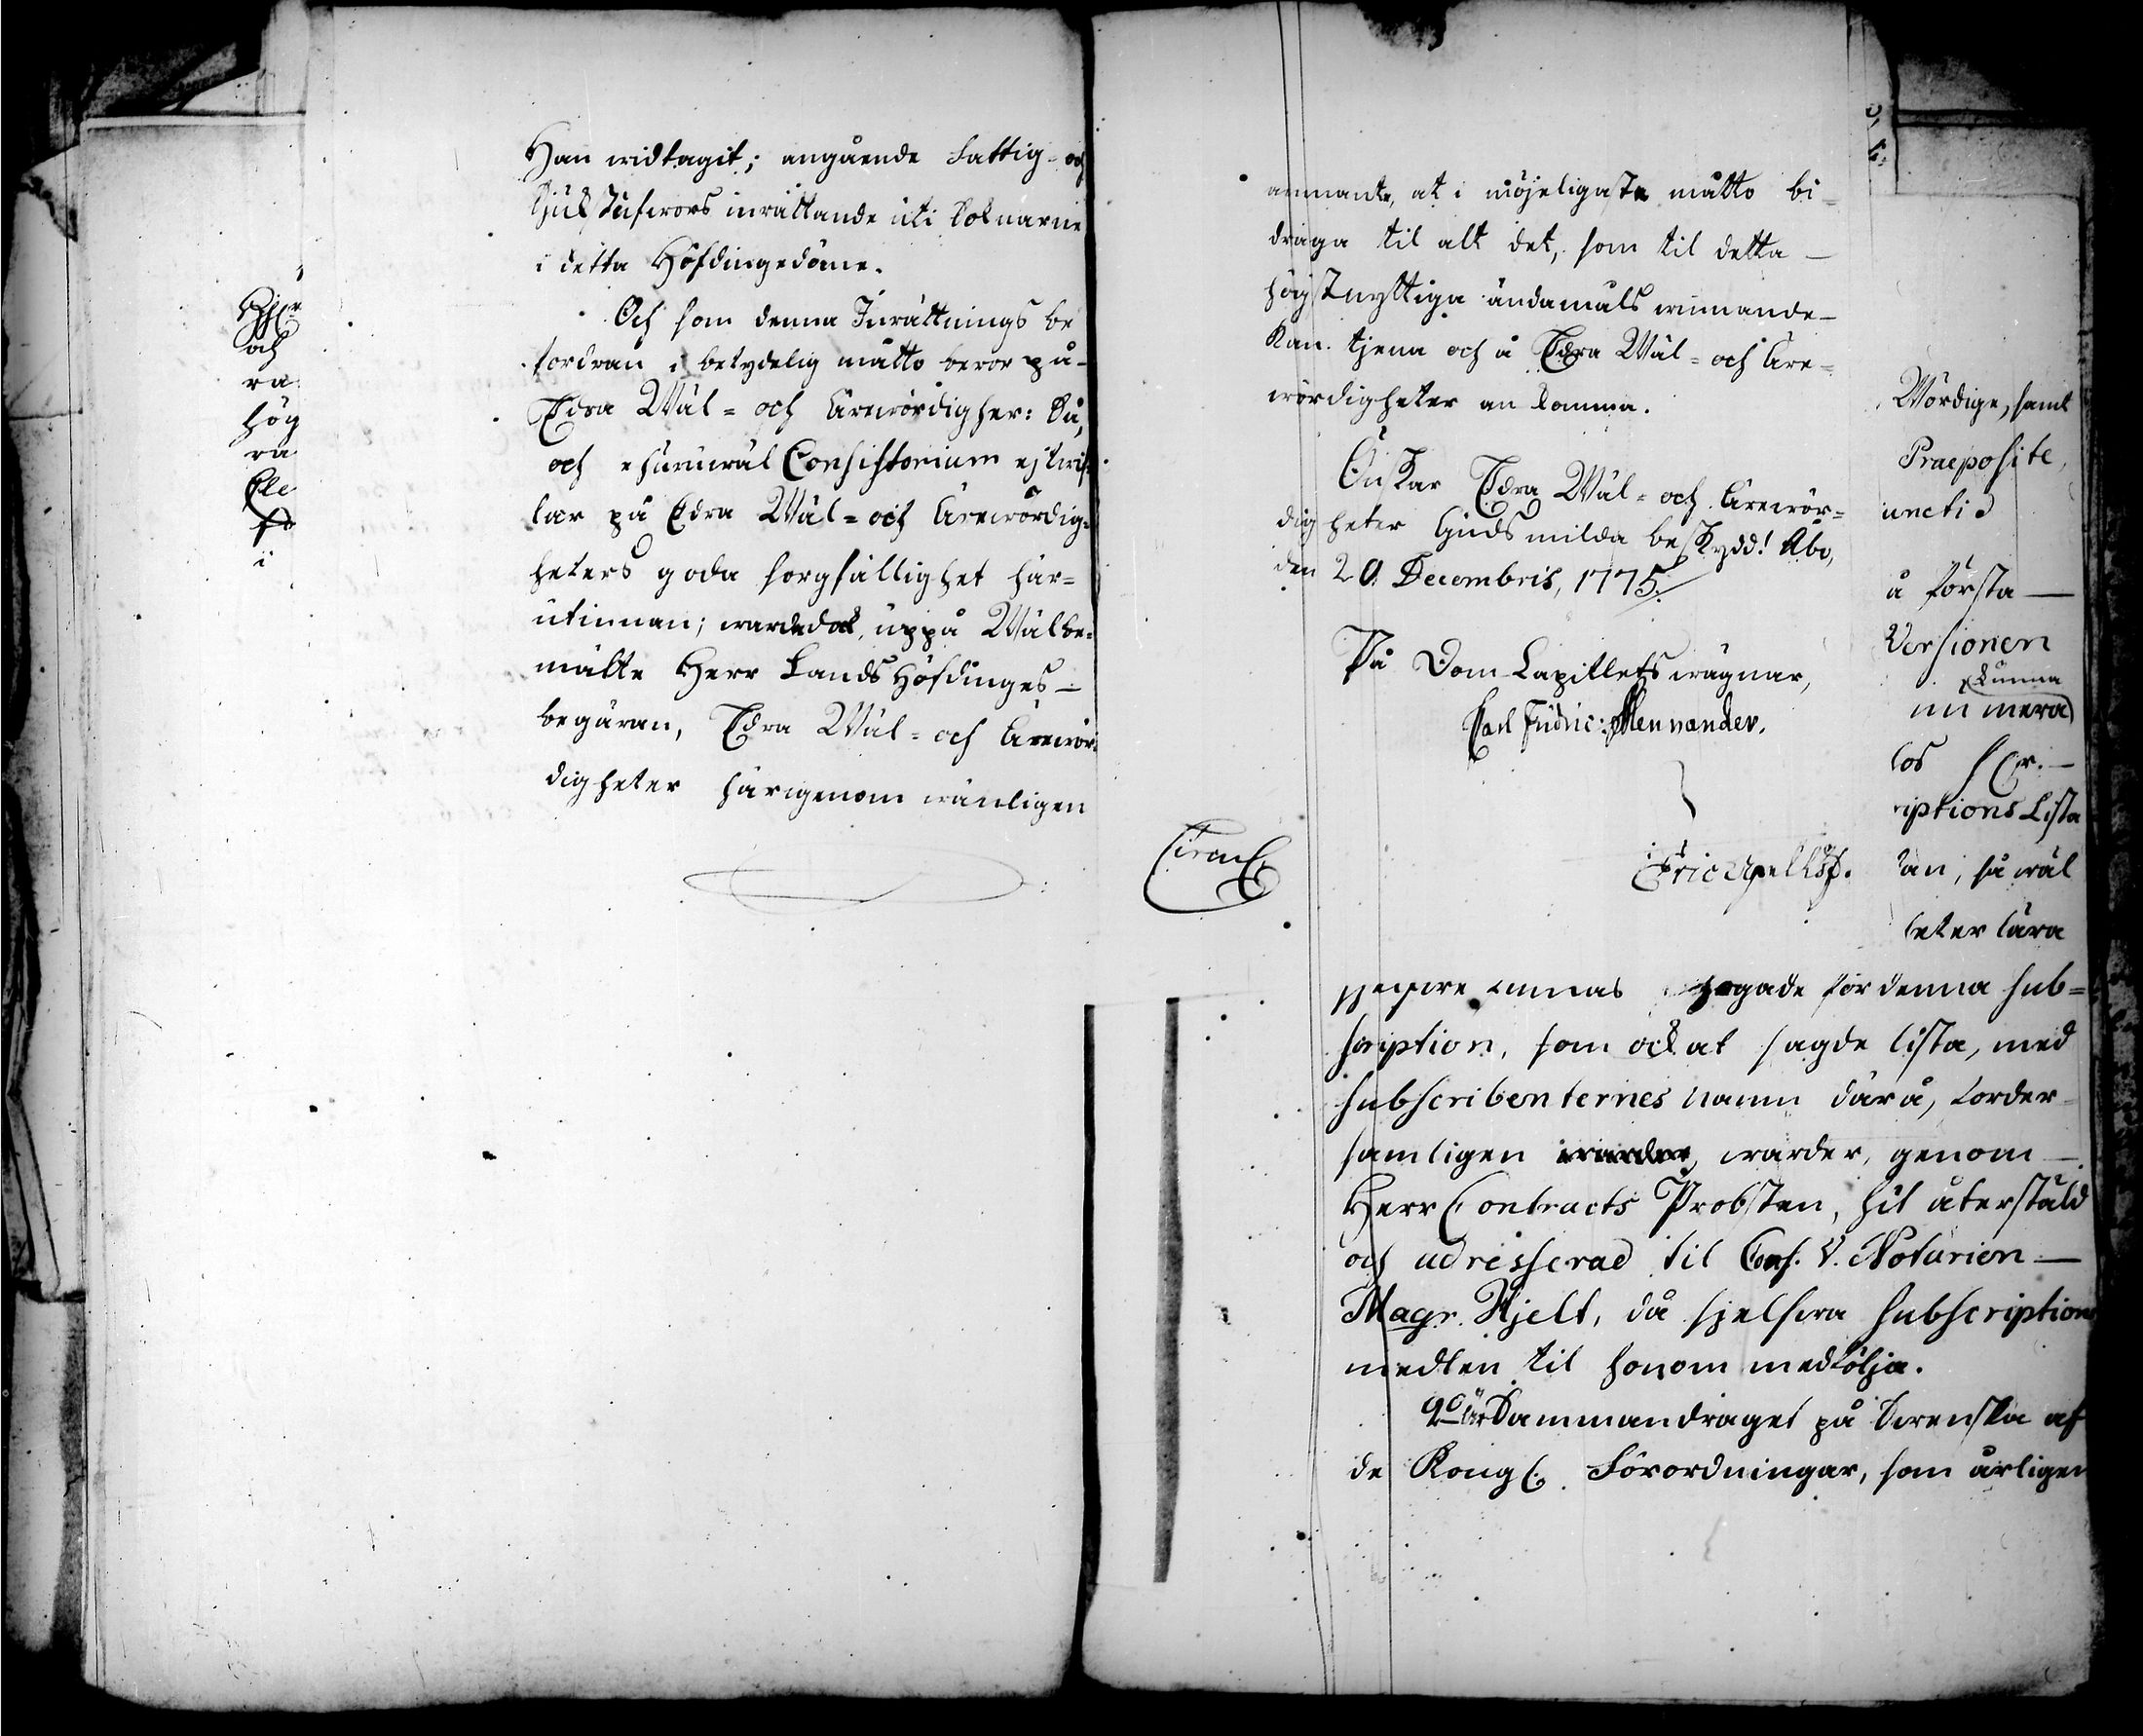 Han widtagit; angående Fattig- och
Sjukstufwors inrättande uti Soknarne
i detta Höfdingedöme.
Och som denna Inrättnings be
fordran i betydelig måtto beror på
Edra Wäl- och Ärewördigher: Så,
och ehuruwäl Consistorium ej twif-
lar på Edra Wäl- och Ärewördig-
heters goda sorgfällighet här-
utinnan; warda dock, uppå Wälbe-
mälte Herr Landshöfdinges
begäran, Edra Wäl- och Ärewör-
digheter härigenom wänligen
anmante, at i möjeligaste måtto bi-
draga til alt det, som til detta
högstnyttiga ändamåls winnande
kan tjena och å Edra Wäl- och Äre-
wördigheter ankomma.
Önskar Edra Wäl- och Ärewör-
digheter Guds milda beskydd! Åbo,
den 20 Decembris, 1775.
På Dom-Capitlets wägnar,
Carl Fridric: Mennander.
Eric
Circul
och
ra
hög
ra
i
Wördige, samt
Praeposite,
å första
Versionen
kunna
nu mera
riptions Lista
tan, så wäl
leter lära
finnas hogade för denna sub-
scription, som ock at sagde lista, med
subscribenternes namn därå, forder-
samligen warder, genom
Herr Contracts Probsten, hit återstäld
och adresserad til Cons. V. Notarien
Magr. Hjelt, då sjelfwa subscriptions
medlen til honom medfölja.
2do är Sammandraget på Swenska af
de Kongl. Förordningar, som årligen